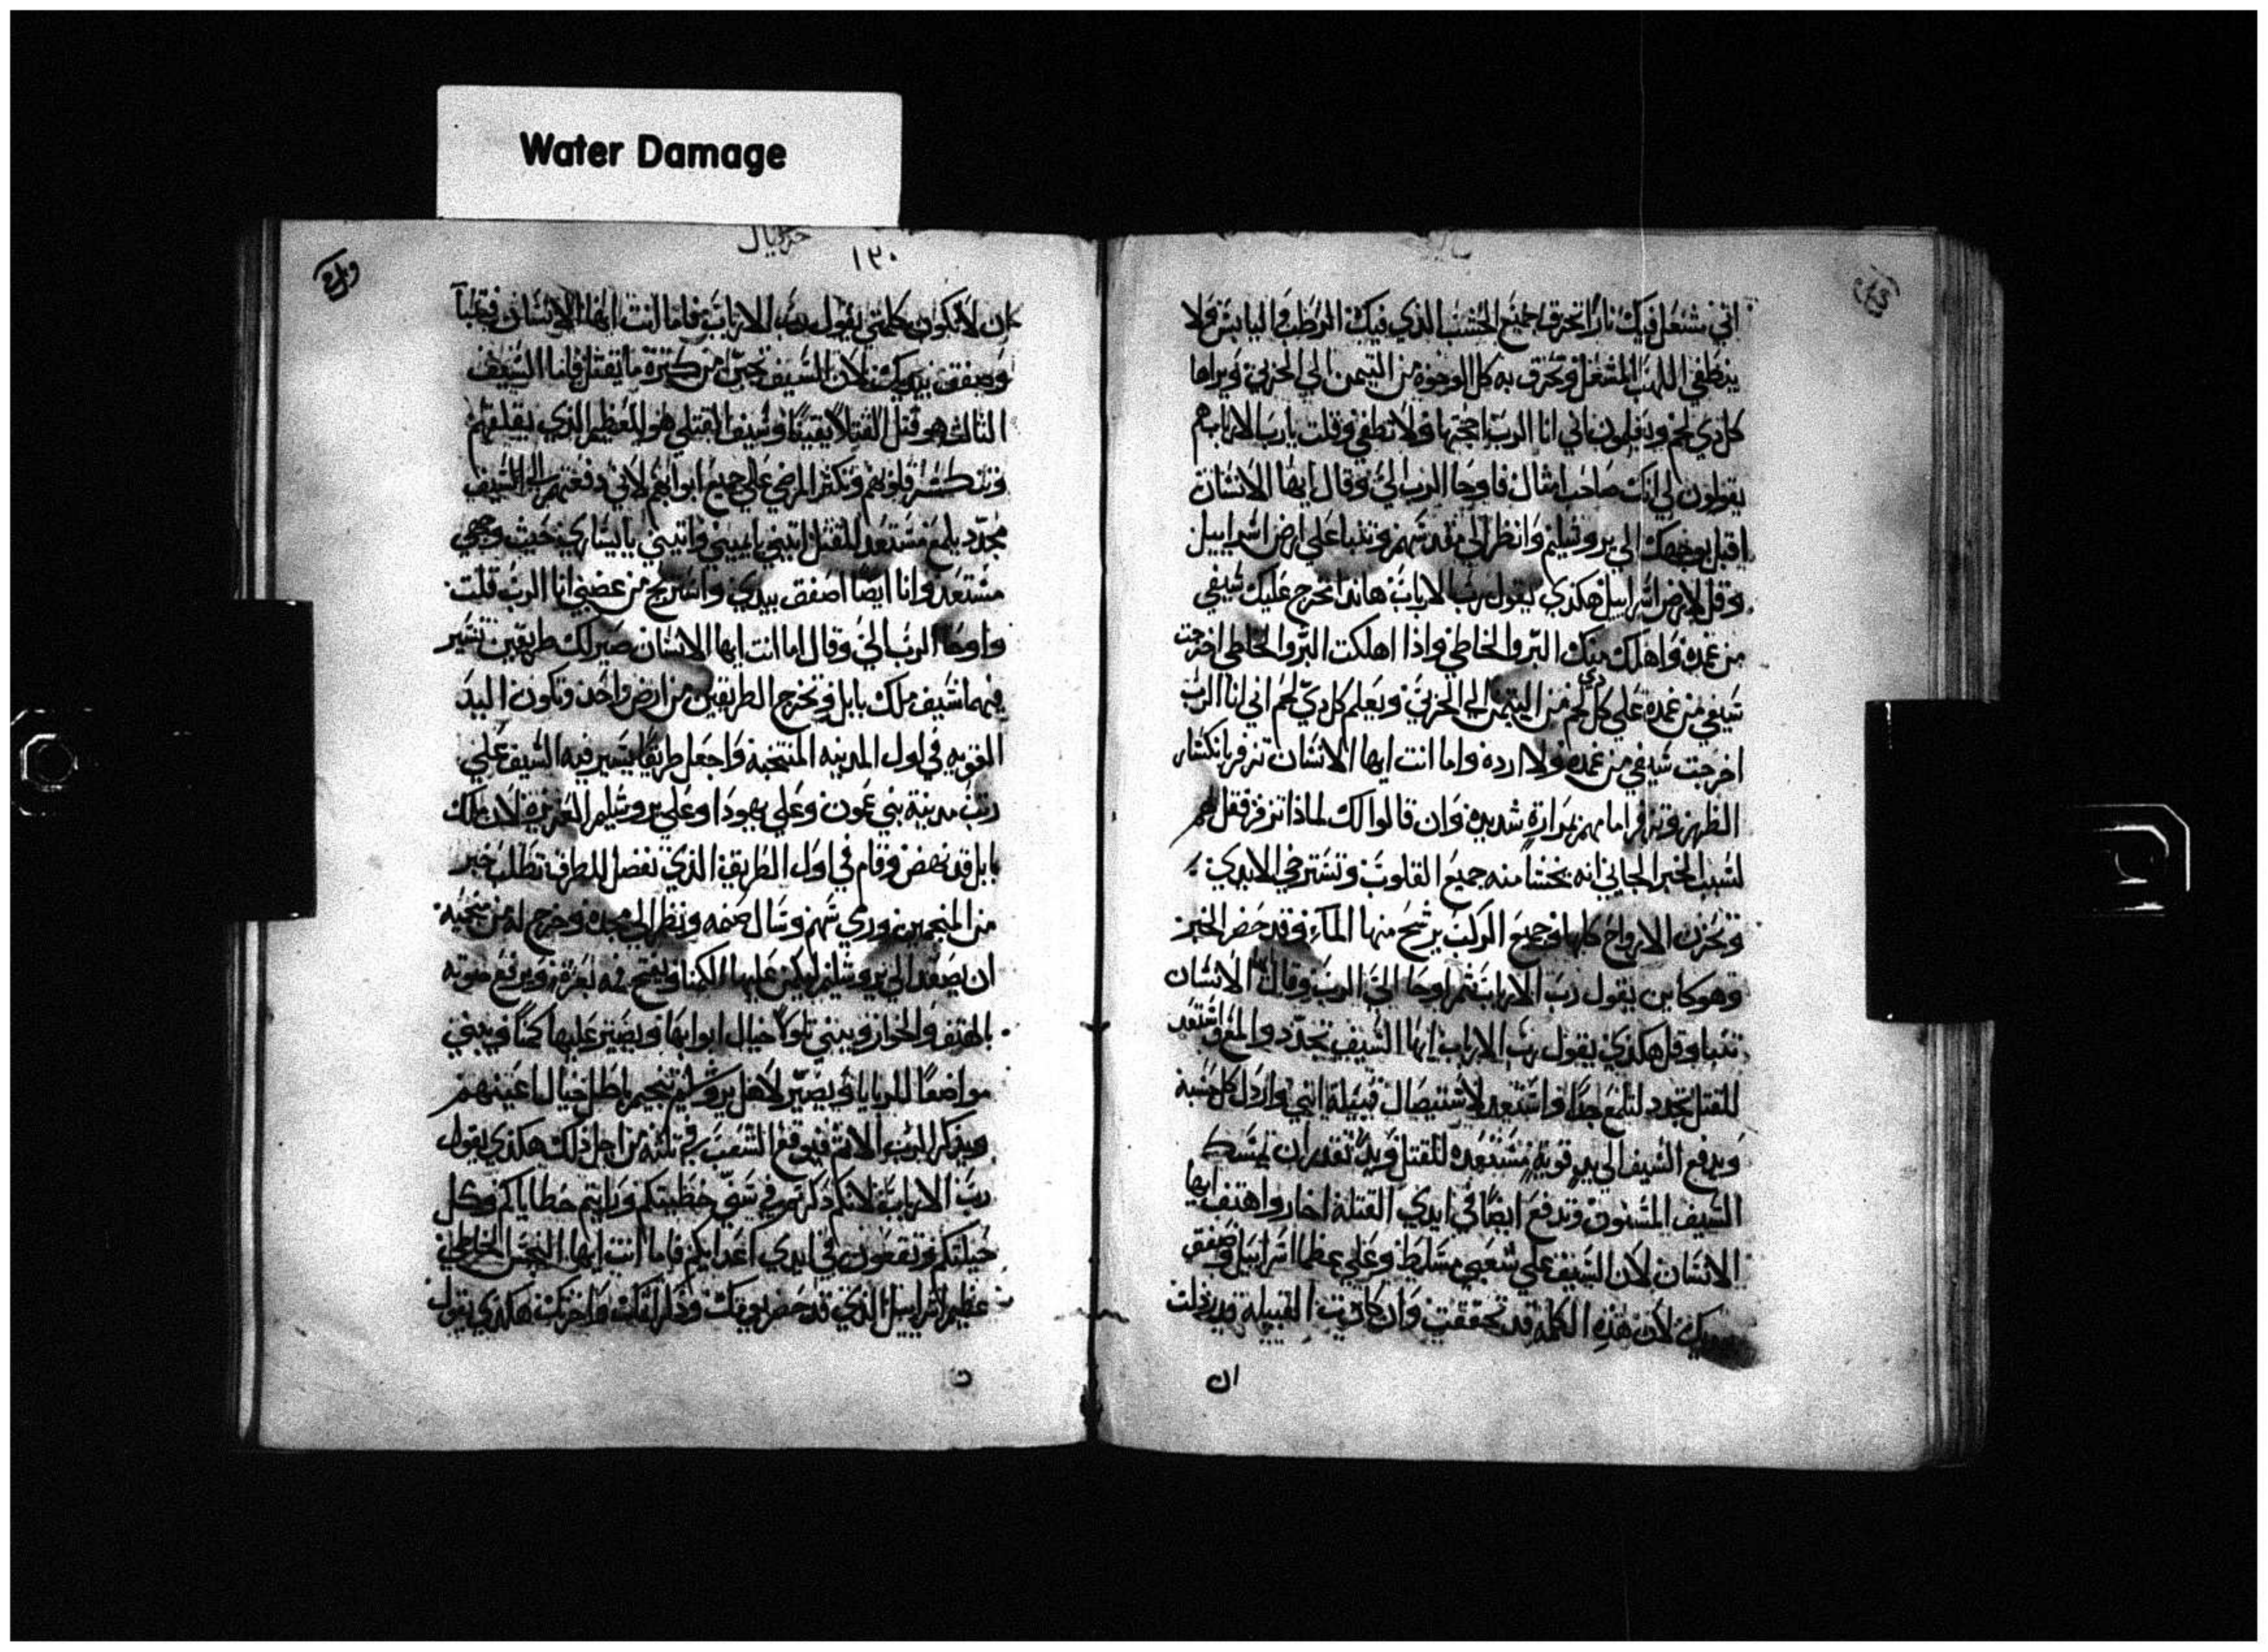 Water Damage
اني مشتعل فيك نارًا تحرق جميع الخشب الذي فيك الرطب واليابس ولا
ينطفي اللهب المشتعل وتحرق به كل الوجوه من التيمن الي الحربي ويراها
كل ذي لحم ويعلمون اني انا الرب اججتها ولا تطفي وقلت يا رب الارباب هم
يقولون لي انك صاحب امثال فاوحا الرب الي وقال ايها الانسان
اقبل بوجهك الي يروشليم وانظر الي مقدسهم وتنبا علي ارض اسراييل
وقل لارض اسراييل هكذي يقول رب الارباب هاندا مخرج عليك سيفي
من غمده واهلك منك البر والخاطي واذا اهلكت البر والخاطي اخرجت
سيفي من غمده علي كل ذي لحم من التيمن الي الحربي ويعلم كل ذي لحم اني انا الرب
اخرجت سيفي من غمده ولا ارده واما انت ايها الانسان تزفر بانكسار
الظهر وتزفر امامهم بمرارة شديده وان قالوا لك لماذا تزفر فقل لهم
لسبب الخبر الجاني انه يخشا منه جميع القلوب وتسترخي الايدي
وتحزن الارواح كلها وجميع الركب يرشح منها الماء وقد حضر الخبر
وهو كاين يقول رب الارباب ثم اوحا الي الرب وقال ايها الانسان
تنبا وقل هكذي يقول رب الارباب ايها السيف تحدد والمع واستعد
للقتل تحدد لتلمع جدًا واستعد لاستيصال قبيلة ابني وارذل كل خشبه
ويدفع السيف الي يد قوية مستعده للقتل ويد تقدر ان تمسك
السيف المسنون وتدفع ايضًا في ايدي القتلة اخار واهتف ايها
الانسان لان السيف علي شعبي مسلط وعلي عظما اسراييل وصفق
بيديك لان هذه الكلمه قد تحققت وان كانت القبيله قد رذلت
ان
حزقيال
١٣٠
ان لا تكون كلمتي يقول رب الارباب فاما انت ايها الانسان فتنبا
وصفق بيديك لان السيف يجي من كثرة ما يقتل فاما السيف
الثالث هو قتل القتلا يقينًا وسيف القتلي هو العظيم الذي يقلقهم
وتنكسر قلوبهم وتكثر المرضي علي جميع ابوابهم لاني دفعتهم الي السيف
مجدد يلمع مستعد للقتل اتيني يا يميني واتيني يا يساري حيث وجهي
مستعد وانا ايضًا اصفق بيدي واستريح من غضبي انا الرب قلت
واوحا الرب الي وقال اما انت ايها الانسان صير لك طريقين تسير
فيهما سيف ملك بابل وتخرج الطريقين من ارض واحده وتكون اليد
القويه في اول المدينه المنتخبة واجعل طريقًا يسير فيه السيف علي
ربت مدينة بني عمون وعلي يهودا وعلي يروشليم العزيزه لان ملك
بابل قد نهض وقام في اول الطريق الذي تفصل للطرق تطلب خبر
من المنجمين ورمي سهم وسال صنمه ونظر الي مجده وخرج له من منجيه
ان يصعد الي يروشليم ليكمن عليها الكمنا ويفتح فمه بعزة ويرفع صوته
بالهتف والخوار ويبني تلولا حيال ابوابها ويصير عليها كمنًا ويبني
مواضعًا للرايا ويصير لاهل يروشليم تنجيم باطل حيال اعينهم
ويذكر الرب الاثم فيوقع الشعب في ثلثه من اجل ذلك هكذي يقول
رب الارباب لانكم ذكرتموني سوّ خطيتكم ورايتم خطاياكم وكل
حيلتكم وتقعون في ايدي اعدايكم فاما انت ايها النجس الخاطي
عظيم اسراييل الذي قد حضر يومك وذلك واخرتك هكذي يقول